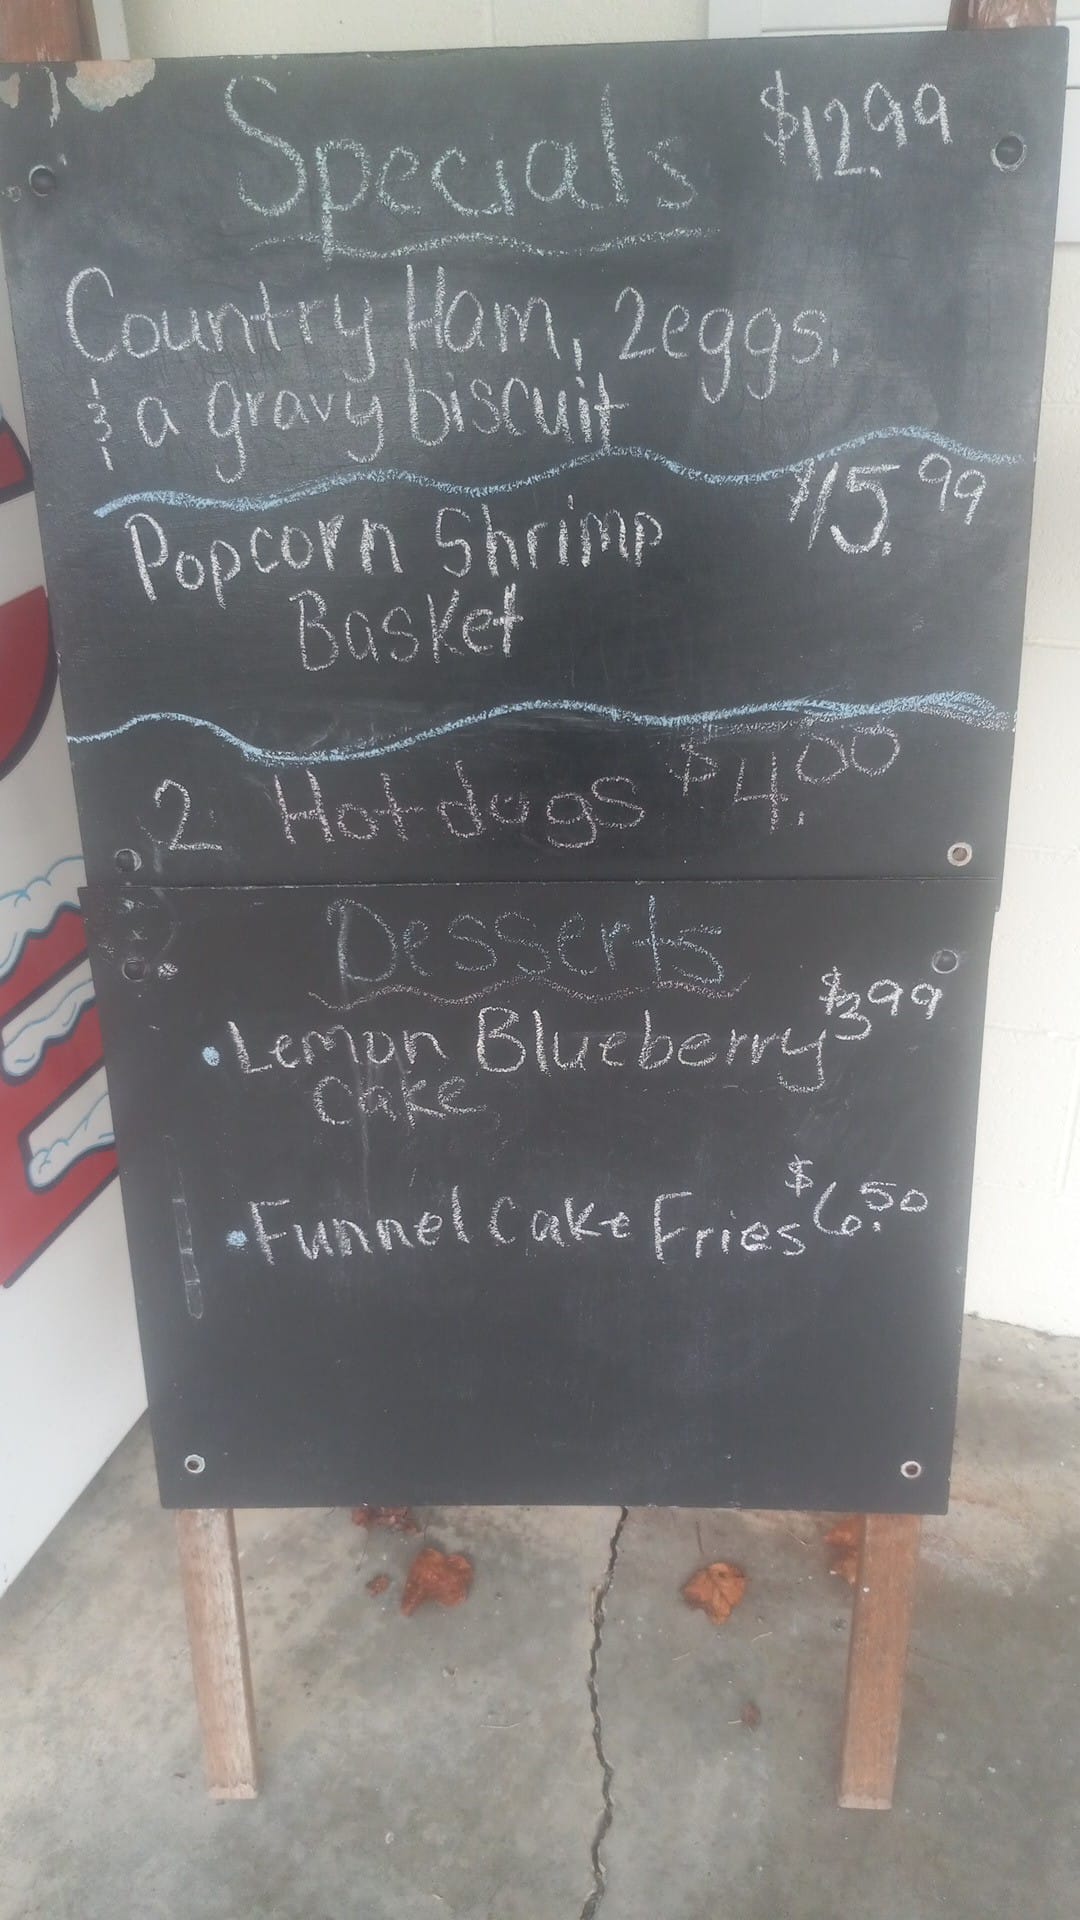 Specials $12.99
Country Ham, 2eggs,
& a gravy biscuit
Popcorn Shrimp $15.99
Basket
2 Hotdogs $4.00
Desserts
• Lemon Blueberry $3.99
Cake
• Funnel Cake Fries $6.50